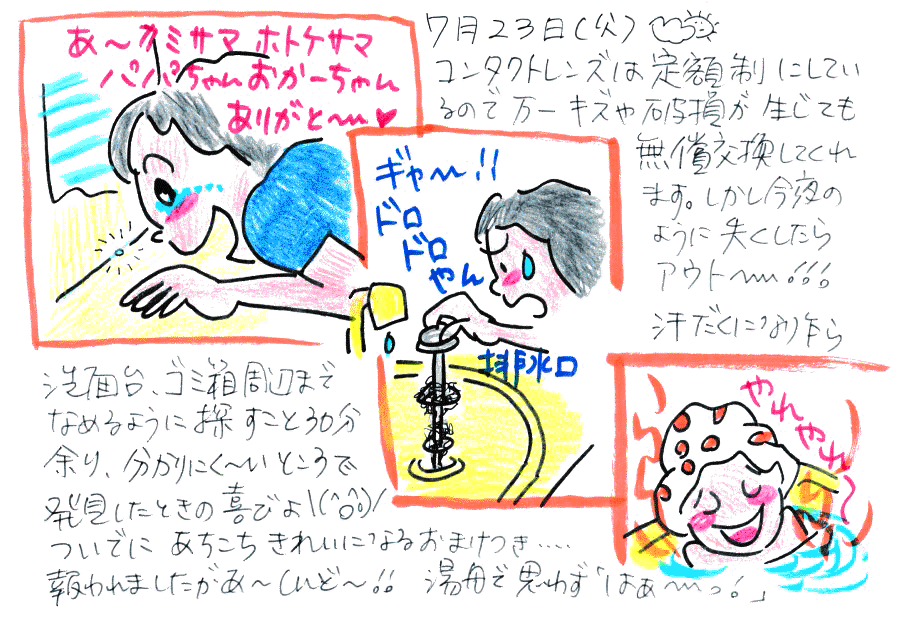 7月23日(火)
コンタクトレンズは定額制にしてい
るので万一キズや破損が生じても
無償交換してくれ
ます。しかし今夜の
ように失くしたら
アウト〜!!!
汗だくになり乍ら
洗面台、ゴミ箱周辺まで
なめるように探すこと30分
余り、分かりにく〜いところで
発見したときの喜びよ\(^o^)/
ついでにあちこちきれいになるおまけつき....
報われましたがあ〜しんど〜!! 湯舟で思わず「はぁ〜っ!」
あ〜カミサマ ホトケサマ
パパちゃんおかーちゃん
ありがと〜♥
ギャ〜!!
ドロ
ドロ
やん
排水口
やれ
やれ〜